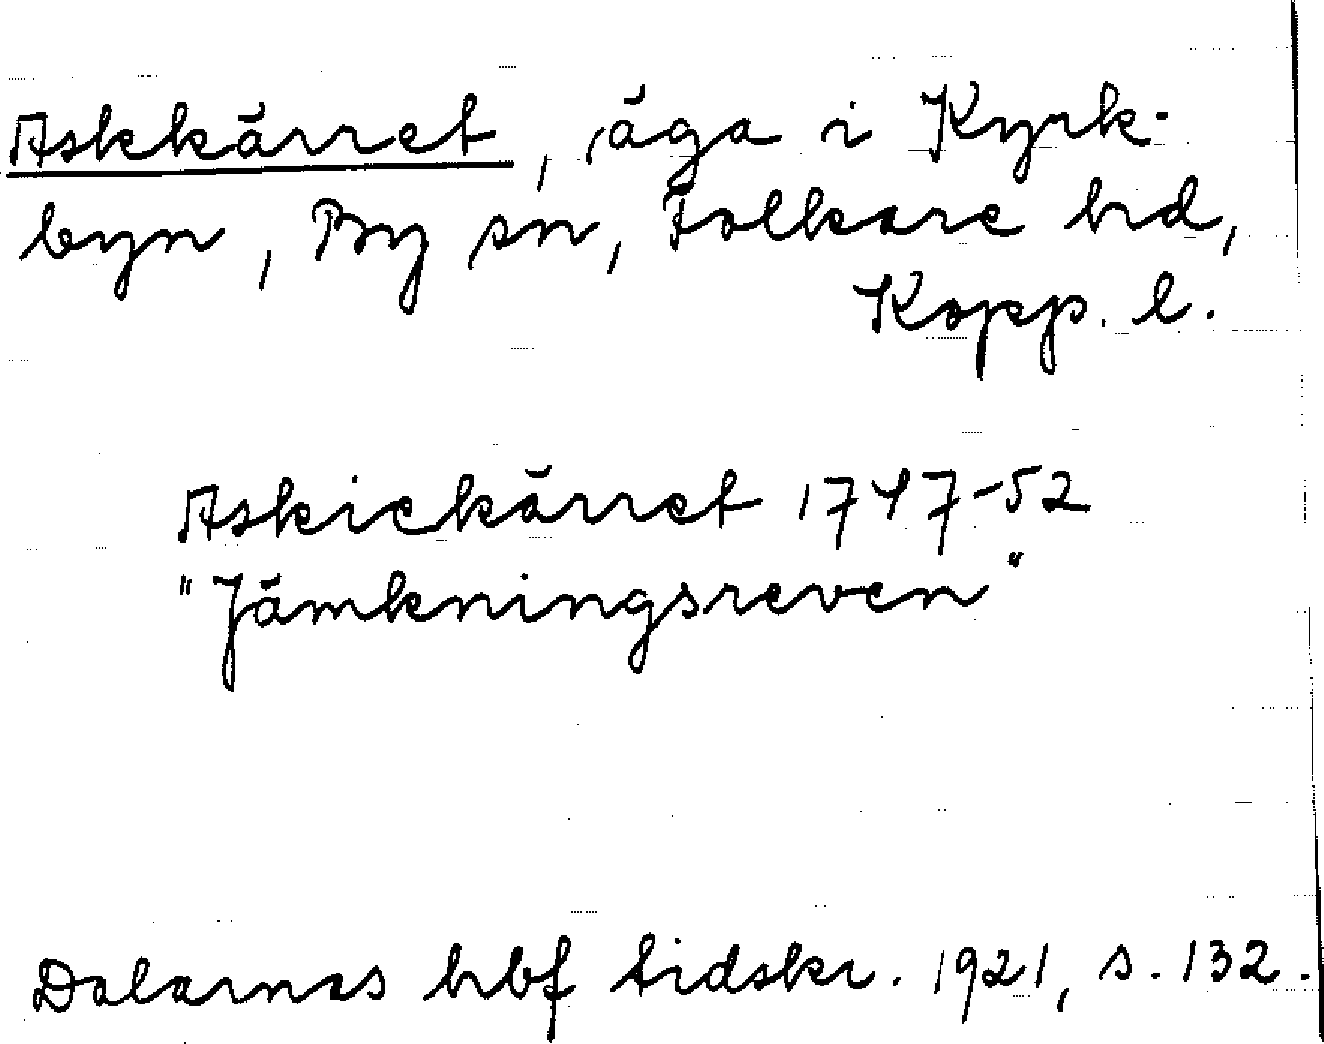 Askkärret, äga i Kyrk-
byn, By sn, Folkare hrd,
Kopp. l.
Askiekärret 1747-52
"Jämkningsreven"
Dalarnas hbf tidskr. 1921, s. 132.